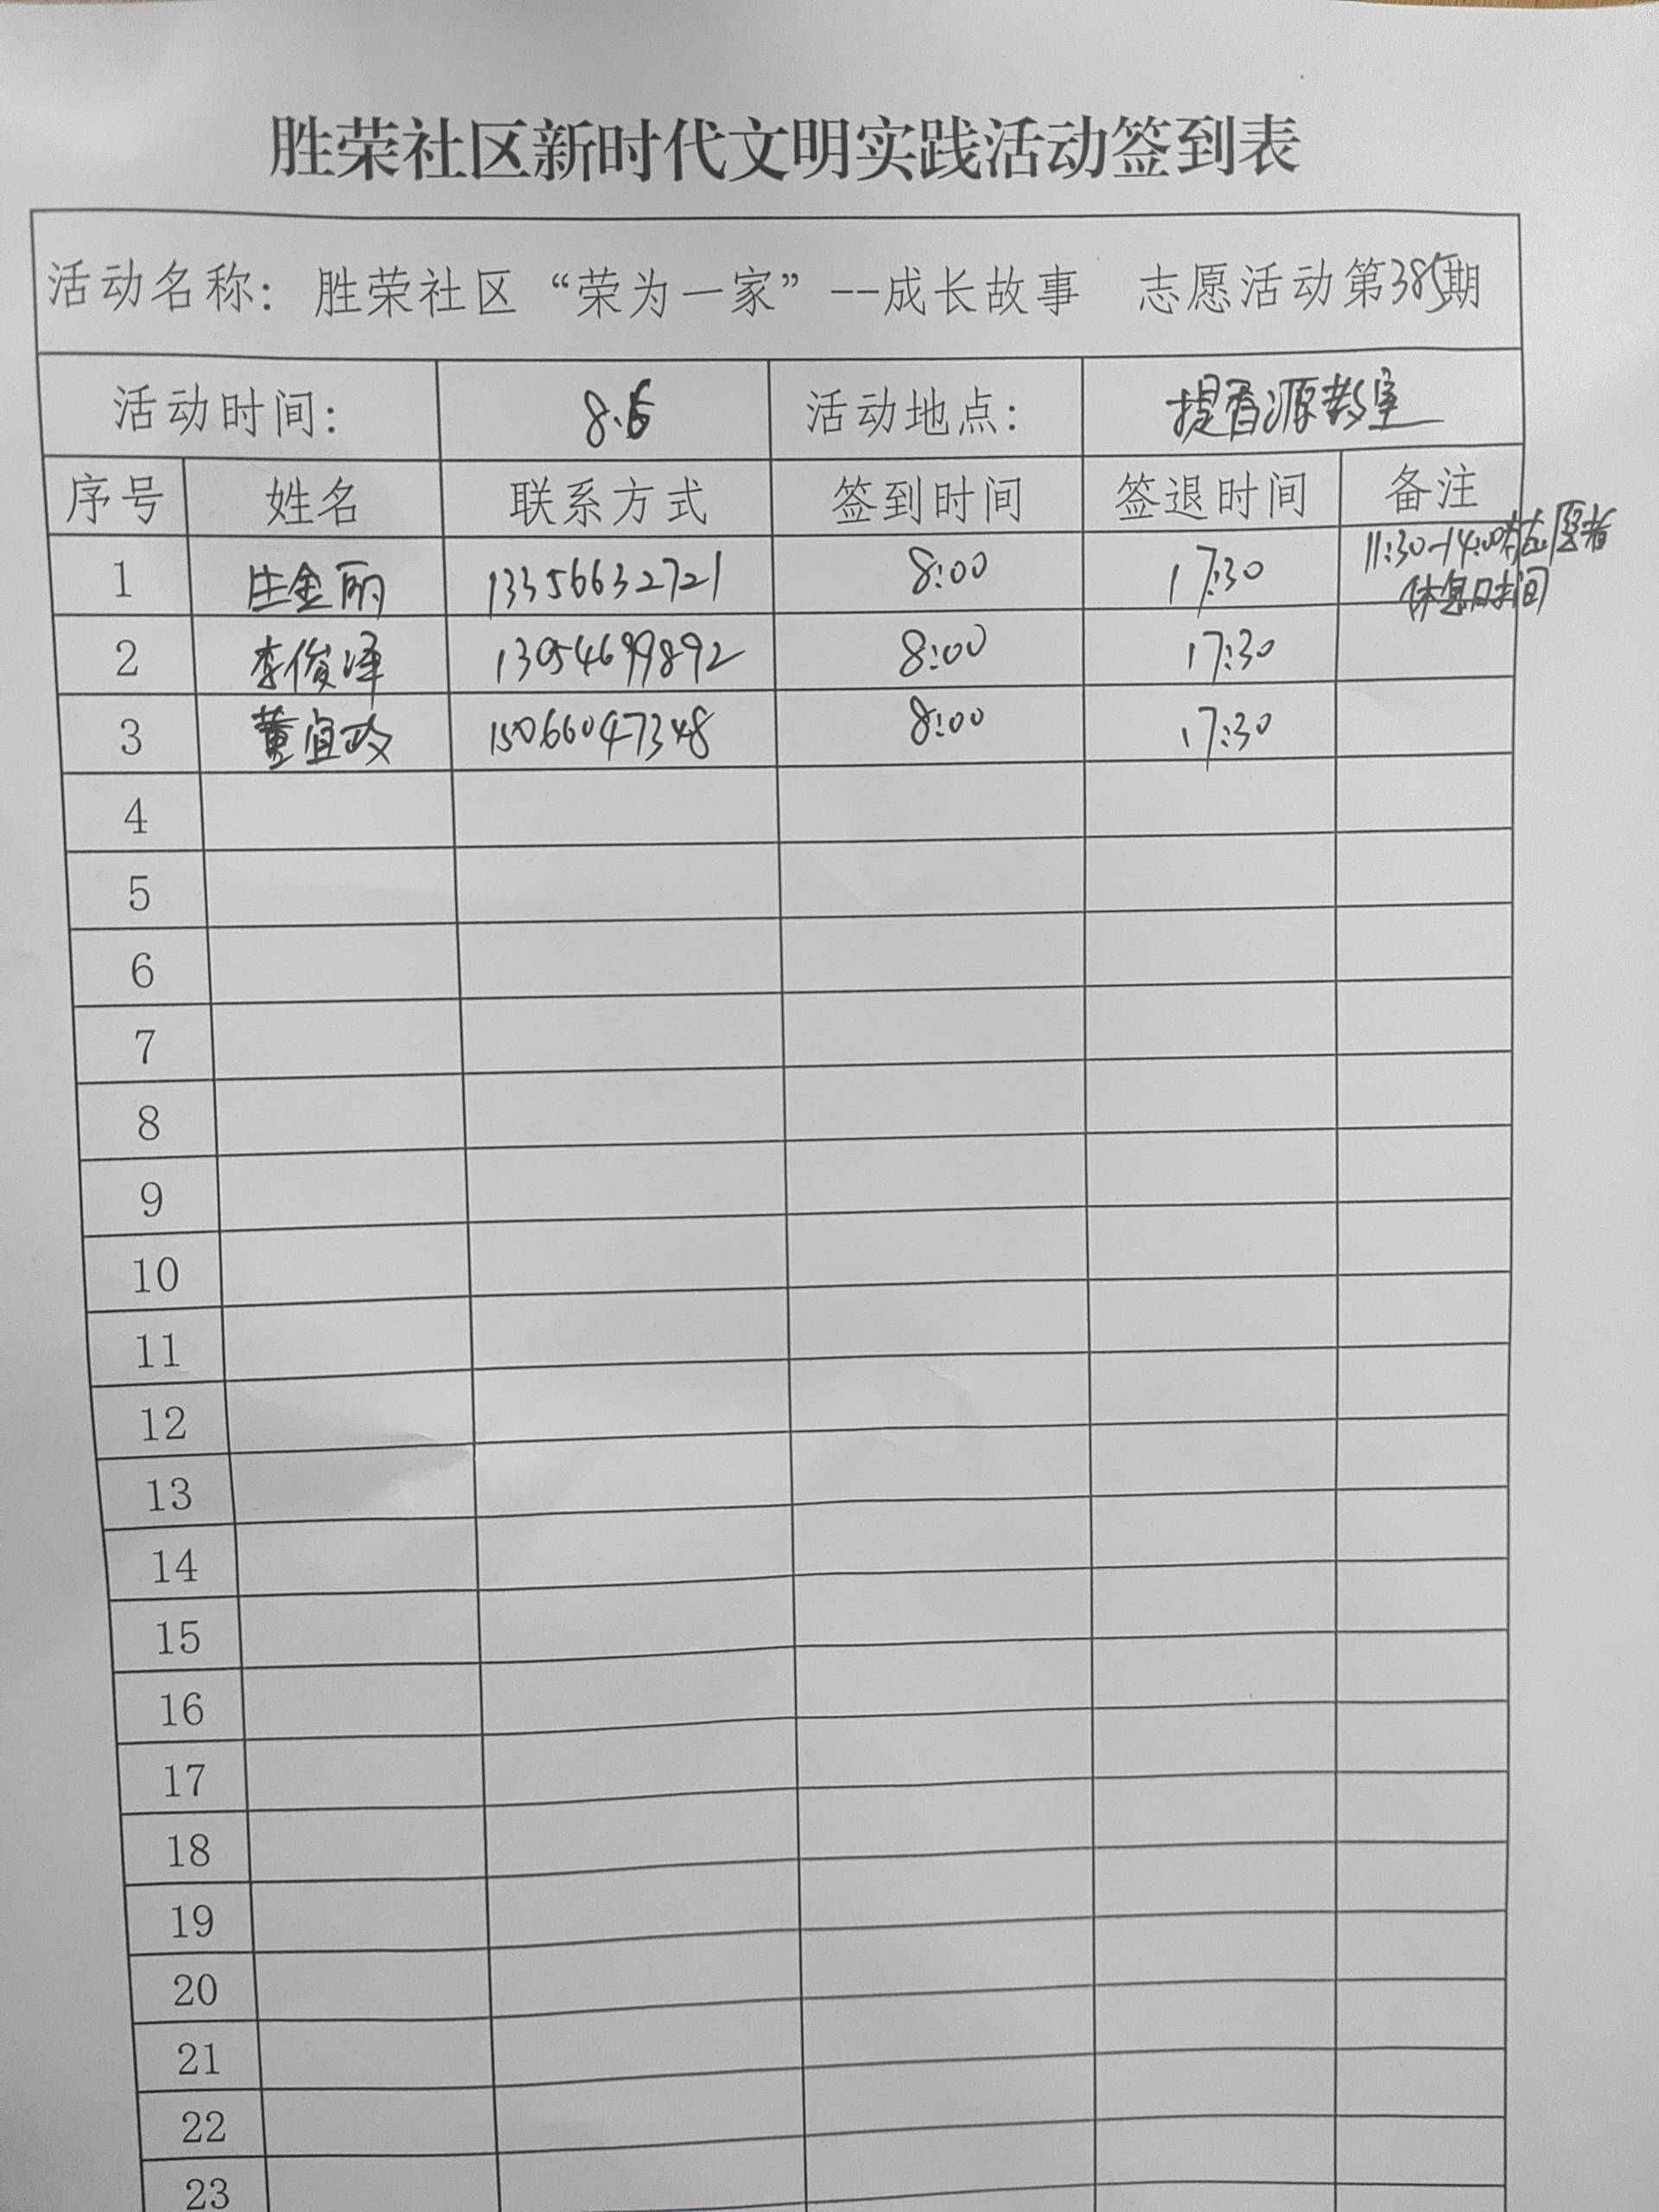 胜荣社区新时代文明实践活动签到表
活动名称：胜荣社区“荣为一家”--成长故事 志愿活动第385期
活动时间： 8.6 活动地点： 提香源教室
序号 姓名 联系方式 签到时间 签退时间 备注
11:30-14:00
休息时间
1 金丽 13356632721 8:00 17:30
2 李俊泽 13054699892 8:00 17:30
3 董宜政 15066047348 8:00 17:30
4
5
6
7
8
9
10
11
12
13
14
15
16
17
18
19
20
21
22
23